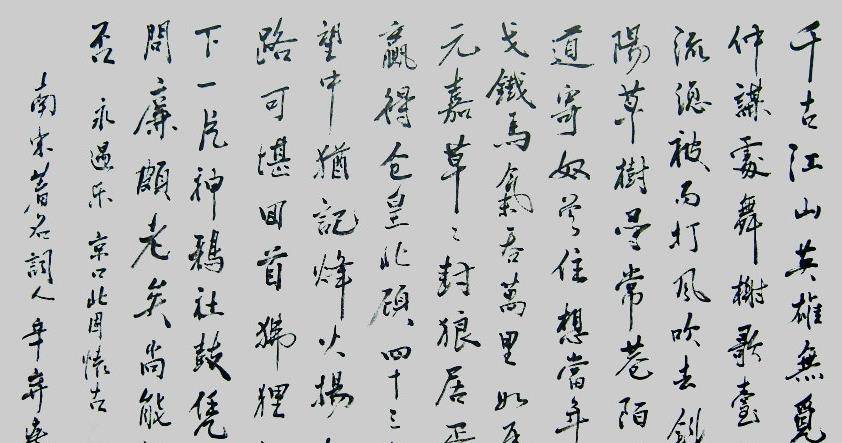 千古江山英雄無覓
仲謀處舞榭歌臺
流總被雨打風吹去斜
陽草樹尋常巷陌
道寄奴曾住想當年
戈鐵馬氣吞萬里如
元嘉草〻封狼居
贏得仓皇北顾四十三
望中猶記烽火揚
路可堪回首狒狸
下一片神鴉社鼓凭
問廉頗老矣尚能
否 永遇乐 京口北固懷古
南宋著名詞人辛弃